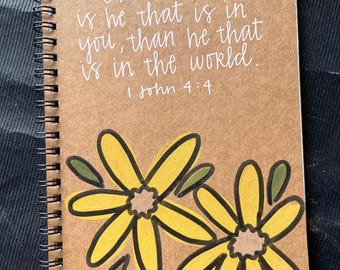 is he that is in
you, than he that
is in the world.
1 John 4:4